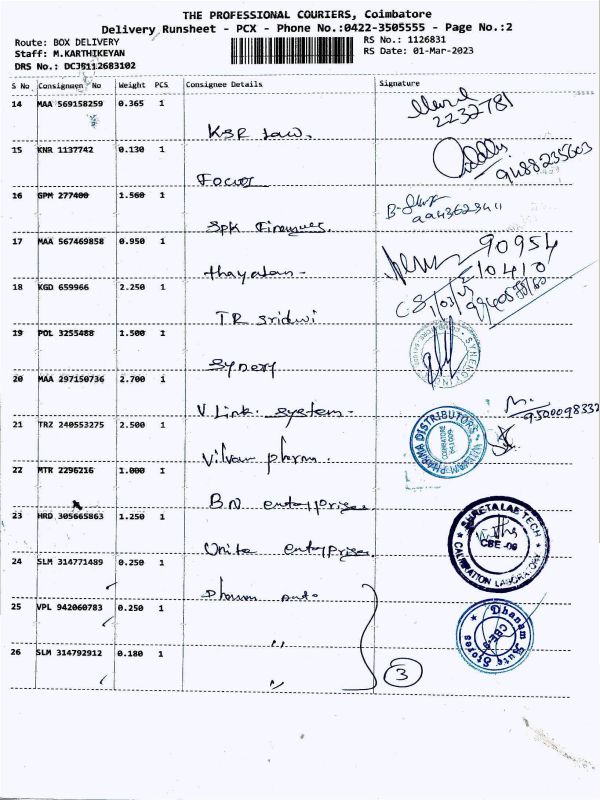 THE PROFESSIONAL COURIERS, Coimbatore
Delivery Runsheet - PCX - Phone No.:0422-3505555 - Page No.:2
Route: BOX DELIVERY
RS No.: 1126831
Staff: M.KARTHIKEYAN
RS Date: 01-Mar-2023
DRS No.: DCJ6112683102
S No Consignmen No Weight PCS Consignee Details Signature
14 MAA 569158259 0.365 1
2232781
KSR Law.
15 KNR 1137742 0.130 1
9488235603
Focus
16 GPM 277400 1.560 1
Spk Finances.
17 MAA 567469858 0.950 1
90954
10410
thayalan-
18 KGD 659966 2.250 1
1/03/23
TR sridevi
19 POL 3255488 1.500 1
Synergy
20 MAA 297150736 2.700 1
V Link. system-
9500098332
21 TRZ 240553275 2.500 1
PHARMA DISTRIBUTORS
COIMBATORE
641009
Vilvam pharm.
22 MTR 2296216 1.000 1
BN enterprises
23 HRD 305665863 1.250 1
SHREYA LAB TECH
CBE -09
CALIBRATION LABORATORY
Unite enterprises
24 SLM 314771489 0.250 1
Dhanam auto
25 VPL 942060783 0.250 1
Dhanam Auto Stores
CBE-9
"
26 SLM 314792912 0.180 1
"
3